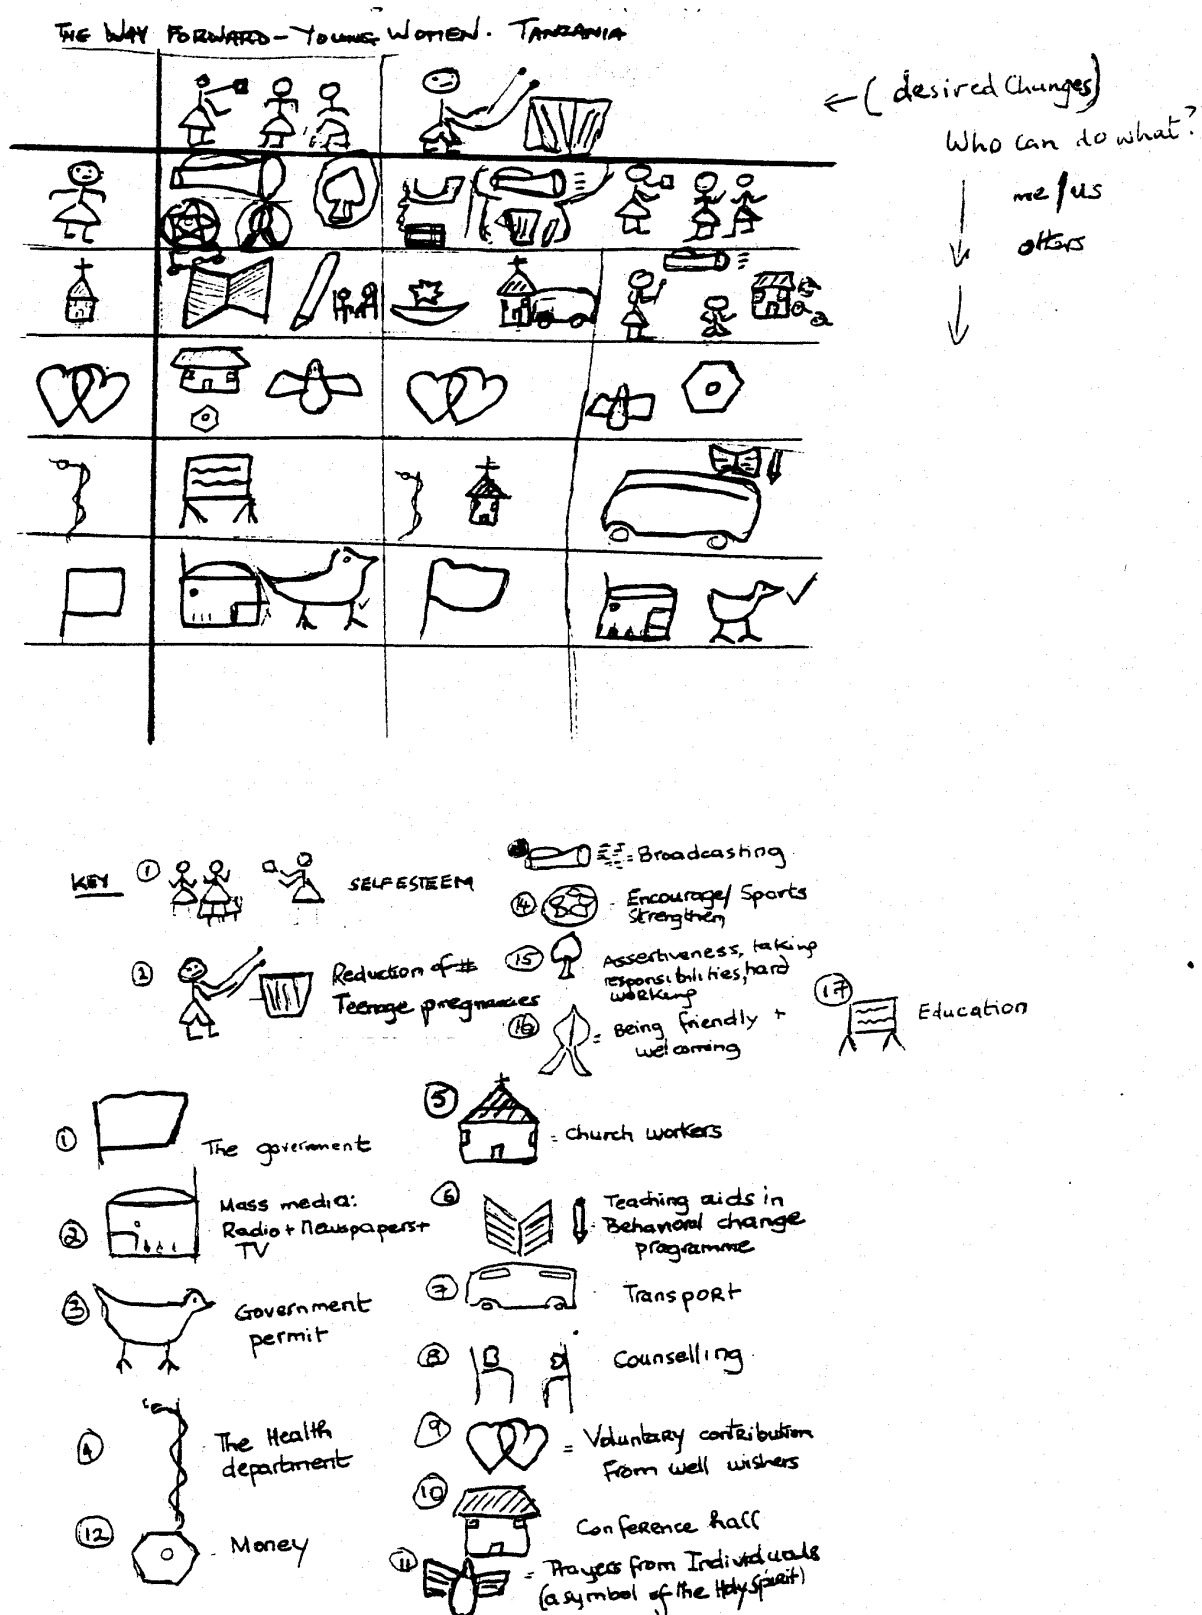 THE WAY FORWARD - YOUNG WOMEN. TANZANIA
← (desired changes)
Who can do what?
me/us
others
KEY
1 SELF ESTEEM
2 Reduction of #
Teenage pregnancies
= Broadcasting
14 Encourage/ Sports
Strengthen
15 Assertiveness, taking
responsibilities, hard
working
16 = Being friendly +
welcoming
17 Education
1 The government
2 Mass media:
Radio + Newspapers +
TV
3 Government
permit
4 The Health
department
12 Money
5 = church workers
6 Teaching aids in
Behavioral change
programme
7 Transport
8 Counselling
9 = Voluntary contribution
From well wishers
10 Conference hall
11 = Prayers from Individuals
(a symbol of the Holy Spirit)